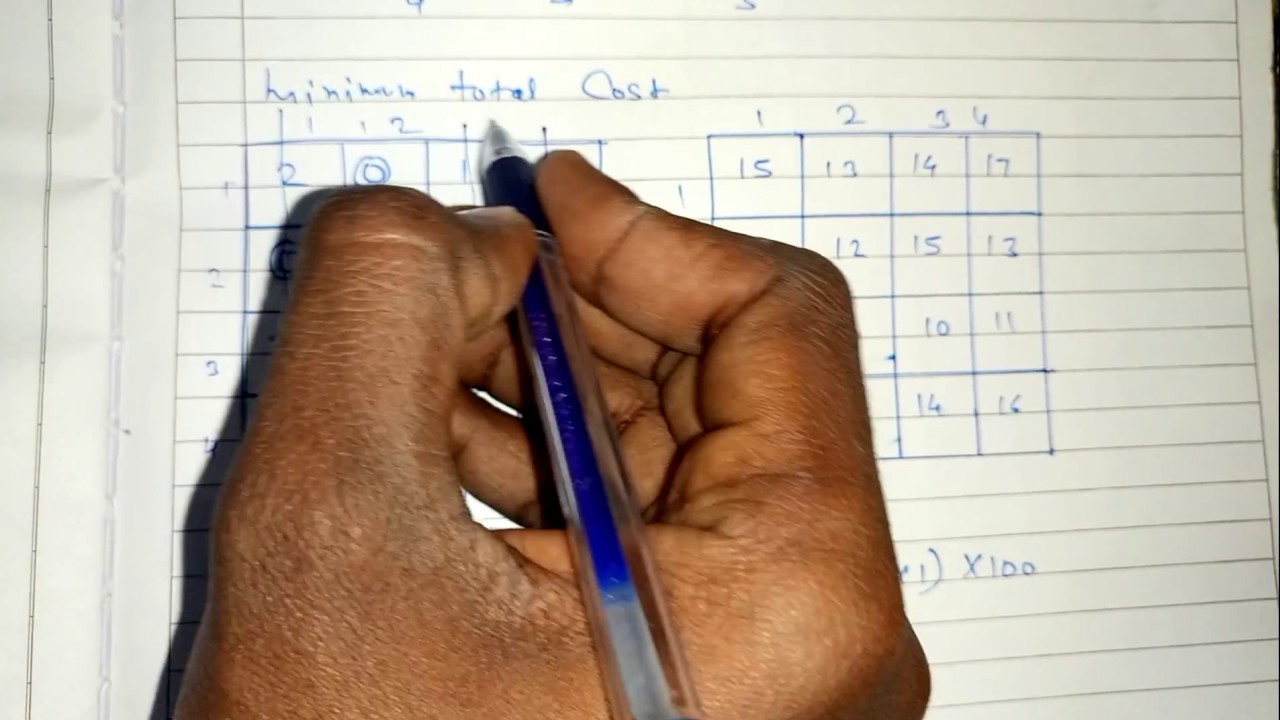 Minimum total Cost
1 2 1 2 3 4
1 2 0 1 1 15 13 14 17
2 12 15 13
3 10 11
4 14 16
1) X100